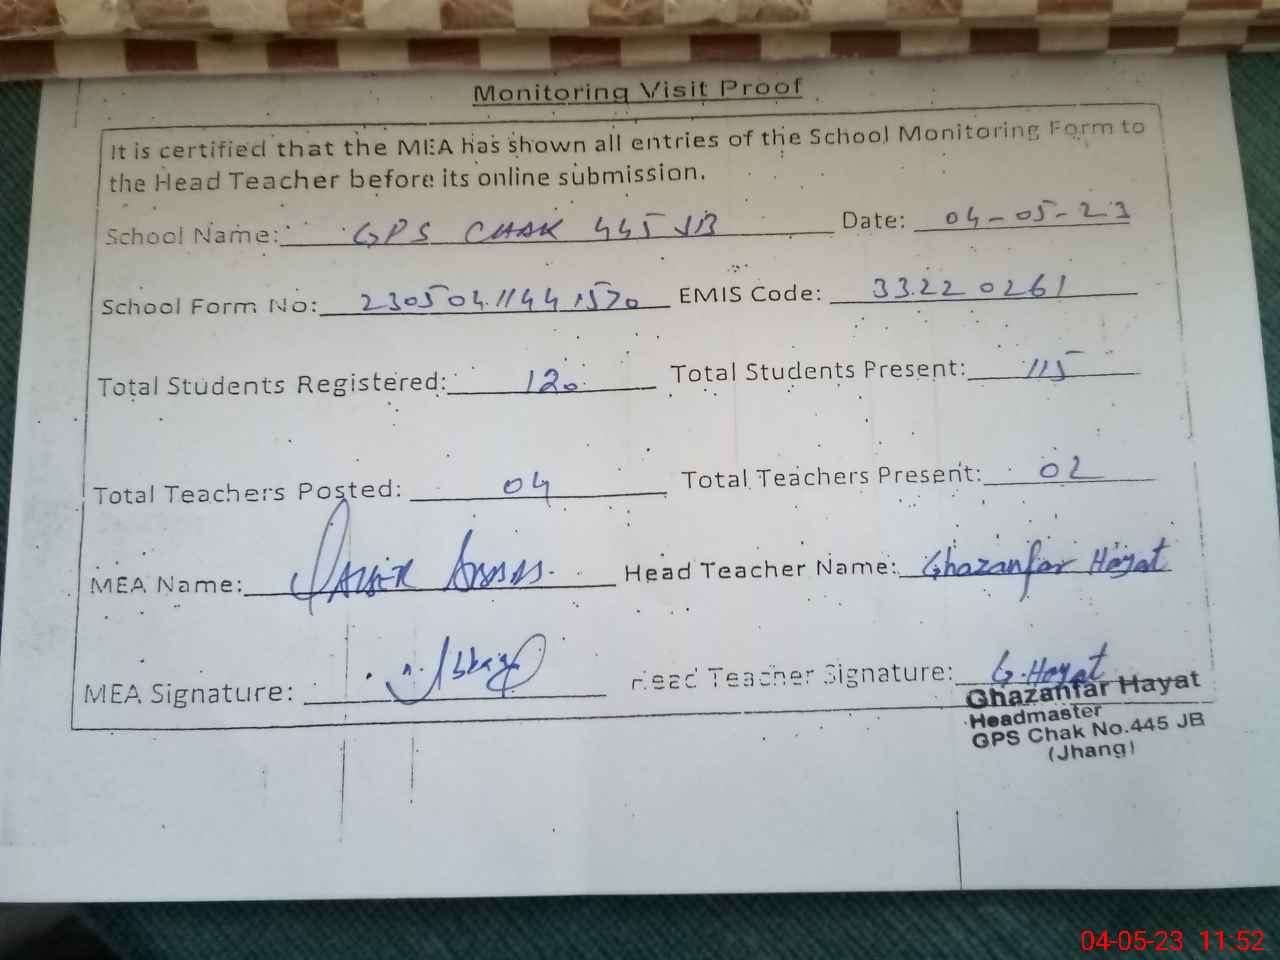 Monitoring Visit Proof
It is certified that the MEA has shown all entries of the School Monitoring Form to
the Head Teacher before its online submission.
School Name: GPS CHAK 445 JB Date: 04-05-23
School Form No: 230504.1144.1570 EMIS Code: 33220261
Total Students Registered: 120 Total Students Present: 115
Total Teachers Posted: 04 Total Teachers Present: 02
MEA Name: Head Teacher Name: Ghazanfar Hayat
MEA Signature: Head Teacher Signature: G.Hayat
Ghazanfar Hayat
Headmaster
GPS Chak No.445 JB
(Jhang)
04-05-23 11:52